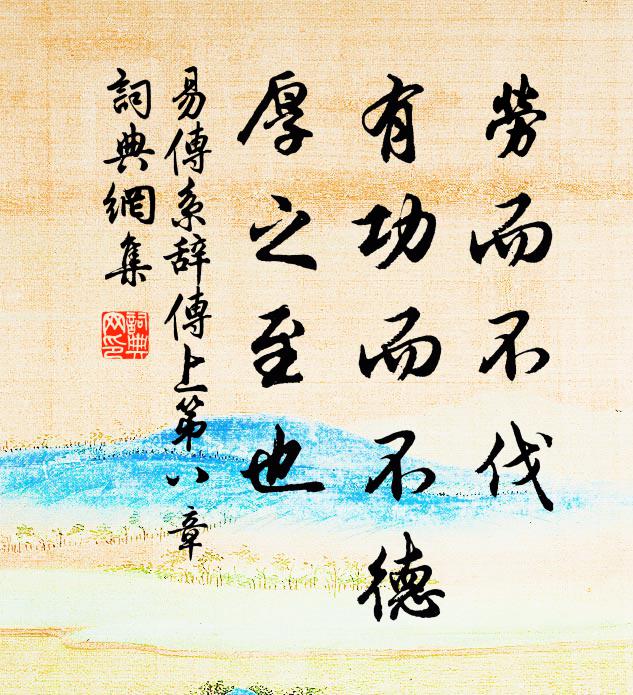 勞而不伐
有功而不德
厚之至也
易傳系辞傳上第八章
詞典網集
詞典网印